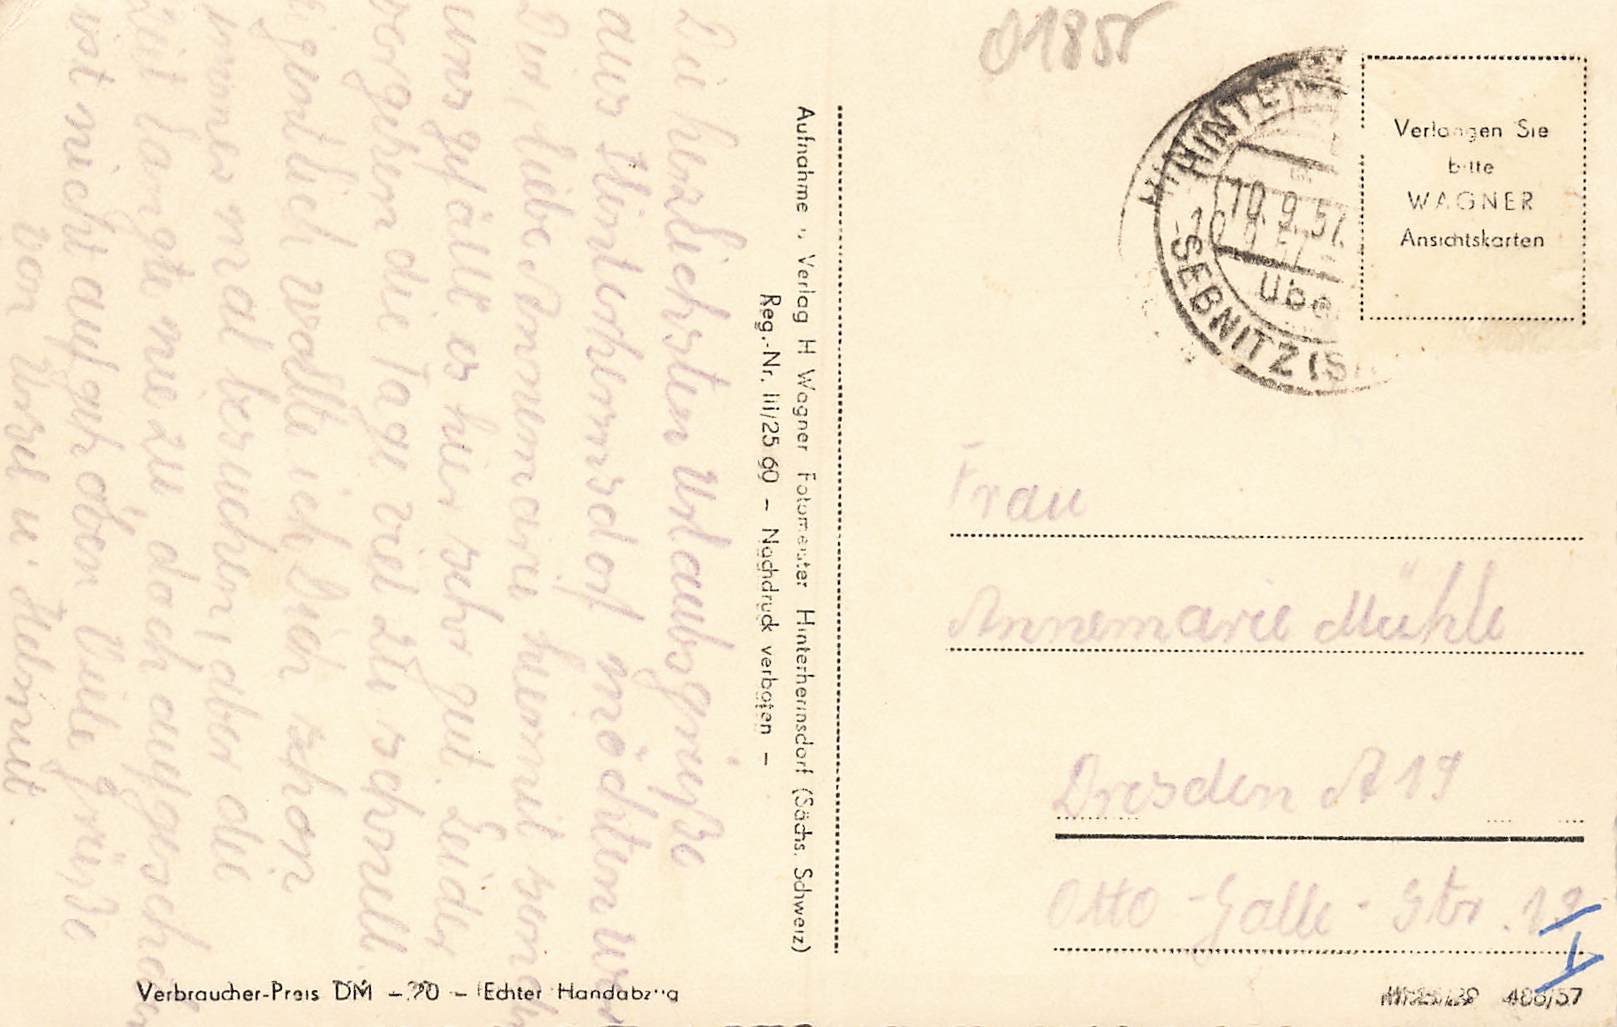 Die herzlichsten Urlaubsgrüße
aus Hinterhermsdorf möchten wir
Dir, liebe Annemarie hiermit senden
uns gefällt es hier sehr gut. Leider
vergehen die Tage viel zu schnell.
Eigentlich wollte ich Dich schon
immer mal besuchen, aber die
Zeit langte nie zu doch aufgeschoben
ist nicht aufgehoben Viele Grüße
von Ursel u. Helmut
Aufnahme u. Verlag H Wagner Fotomeister Hinterhermsdorf (Sächs. Schweiz)
Reg.-Nr. III/25 69 – Nachdruck verboten –
Verbraucher-Preis DM –.20 – Echter Handabzug
01855
10.9.57
SEBNITZ (S
übe
Verlangen Sie
bitte
WAGNER
Ansichtskarten
Frau
Annemarie Mühle
Dresden A 19
Otto-Galle-Str. 19
I
408/57